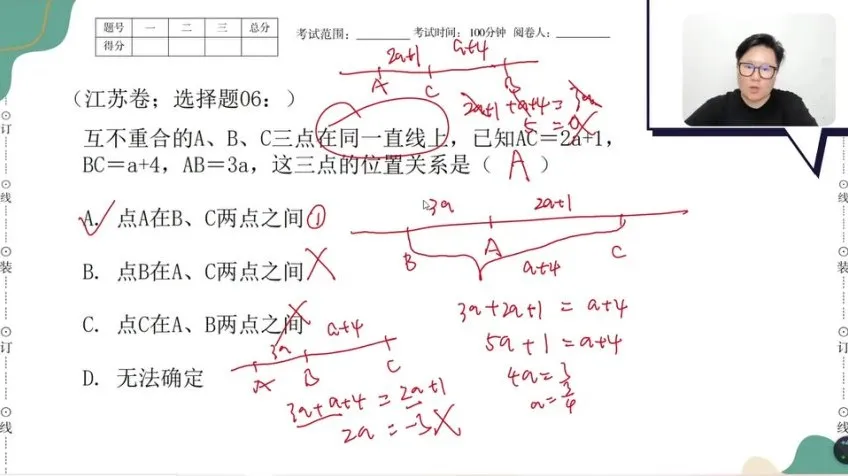 题号 一 二 三 总分
得分
考试范围：________ 考试时间：100分钟 阅卷人：________
2a+1 a+4
A C B
2a+1+a+4=3a
5=0
（江苏卷；选择题06：）
互不重合的A、B、C三点在同一直线上，已知AC＝2a+1，
BC＝a+4，AB＝3a，这三点的位置关系是（ A ）
3a 2a+1
A. 点A在B、C两点之间 ①
B A C
a+4
B. 点B在A、C两点之间
3a+2a+1=a+4
C. 点C在A、B两点之间
5a+1=a+4
3a a+4
A B C
4a=3
D. 无法确定
a=3/4
3a+a+4=2a+1
2a=-3
订
线
装
订
线
订
线
装
订
线